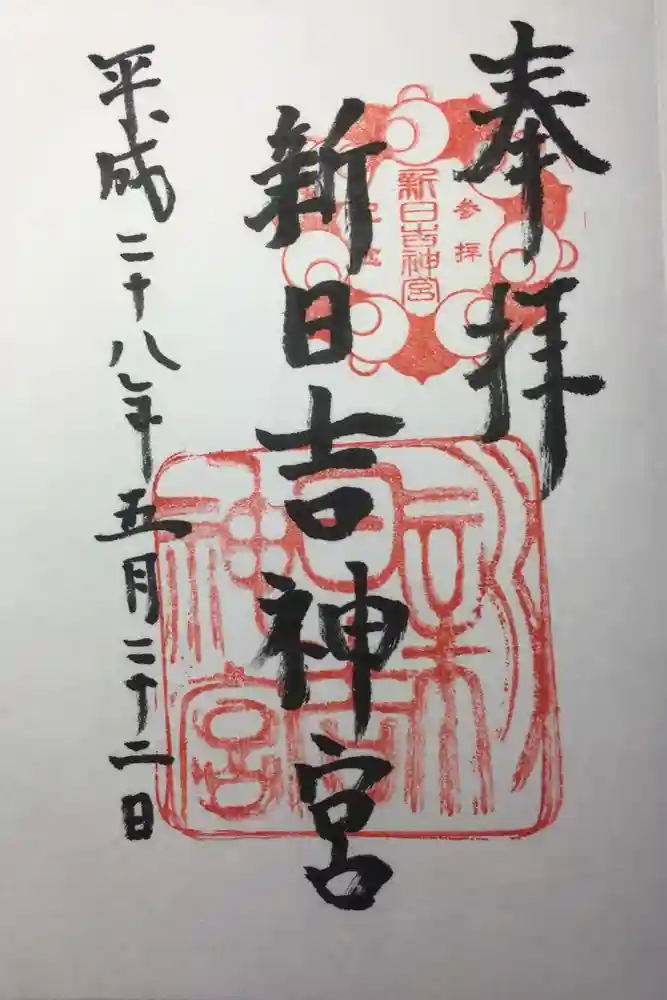 奉拝
参拝
新日吉神宮
記念
新日吉神宮
新日吉神宮
平成二十八年五月二十二日